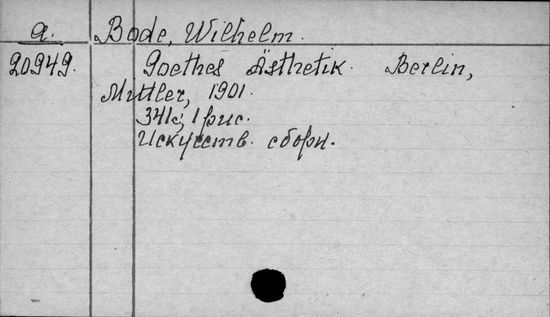 a. Bode, Wilhelm.
20949. Goethes Ästhetik. Berlin,
Mittler, 1901.
341с; 1 рис.
Искусств. сборн.